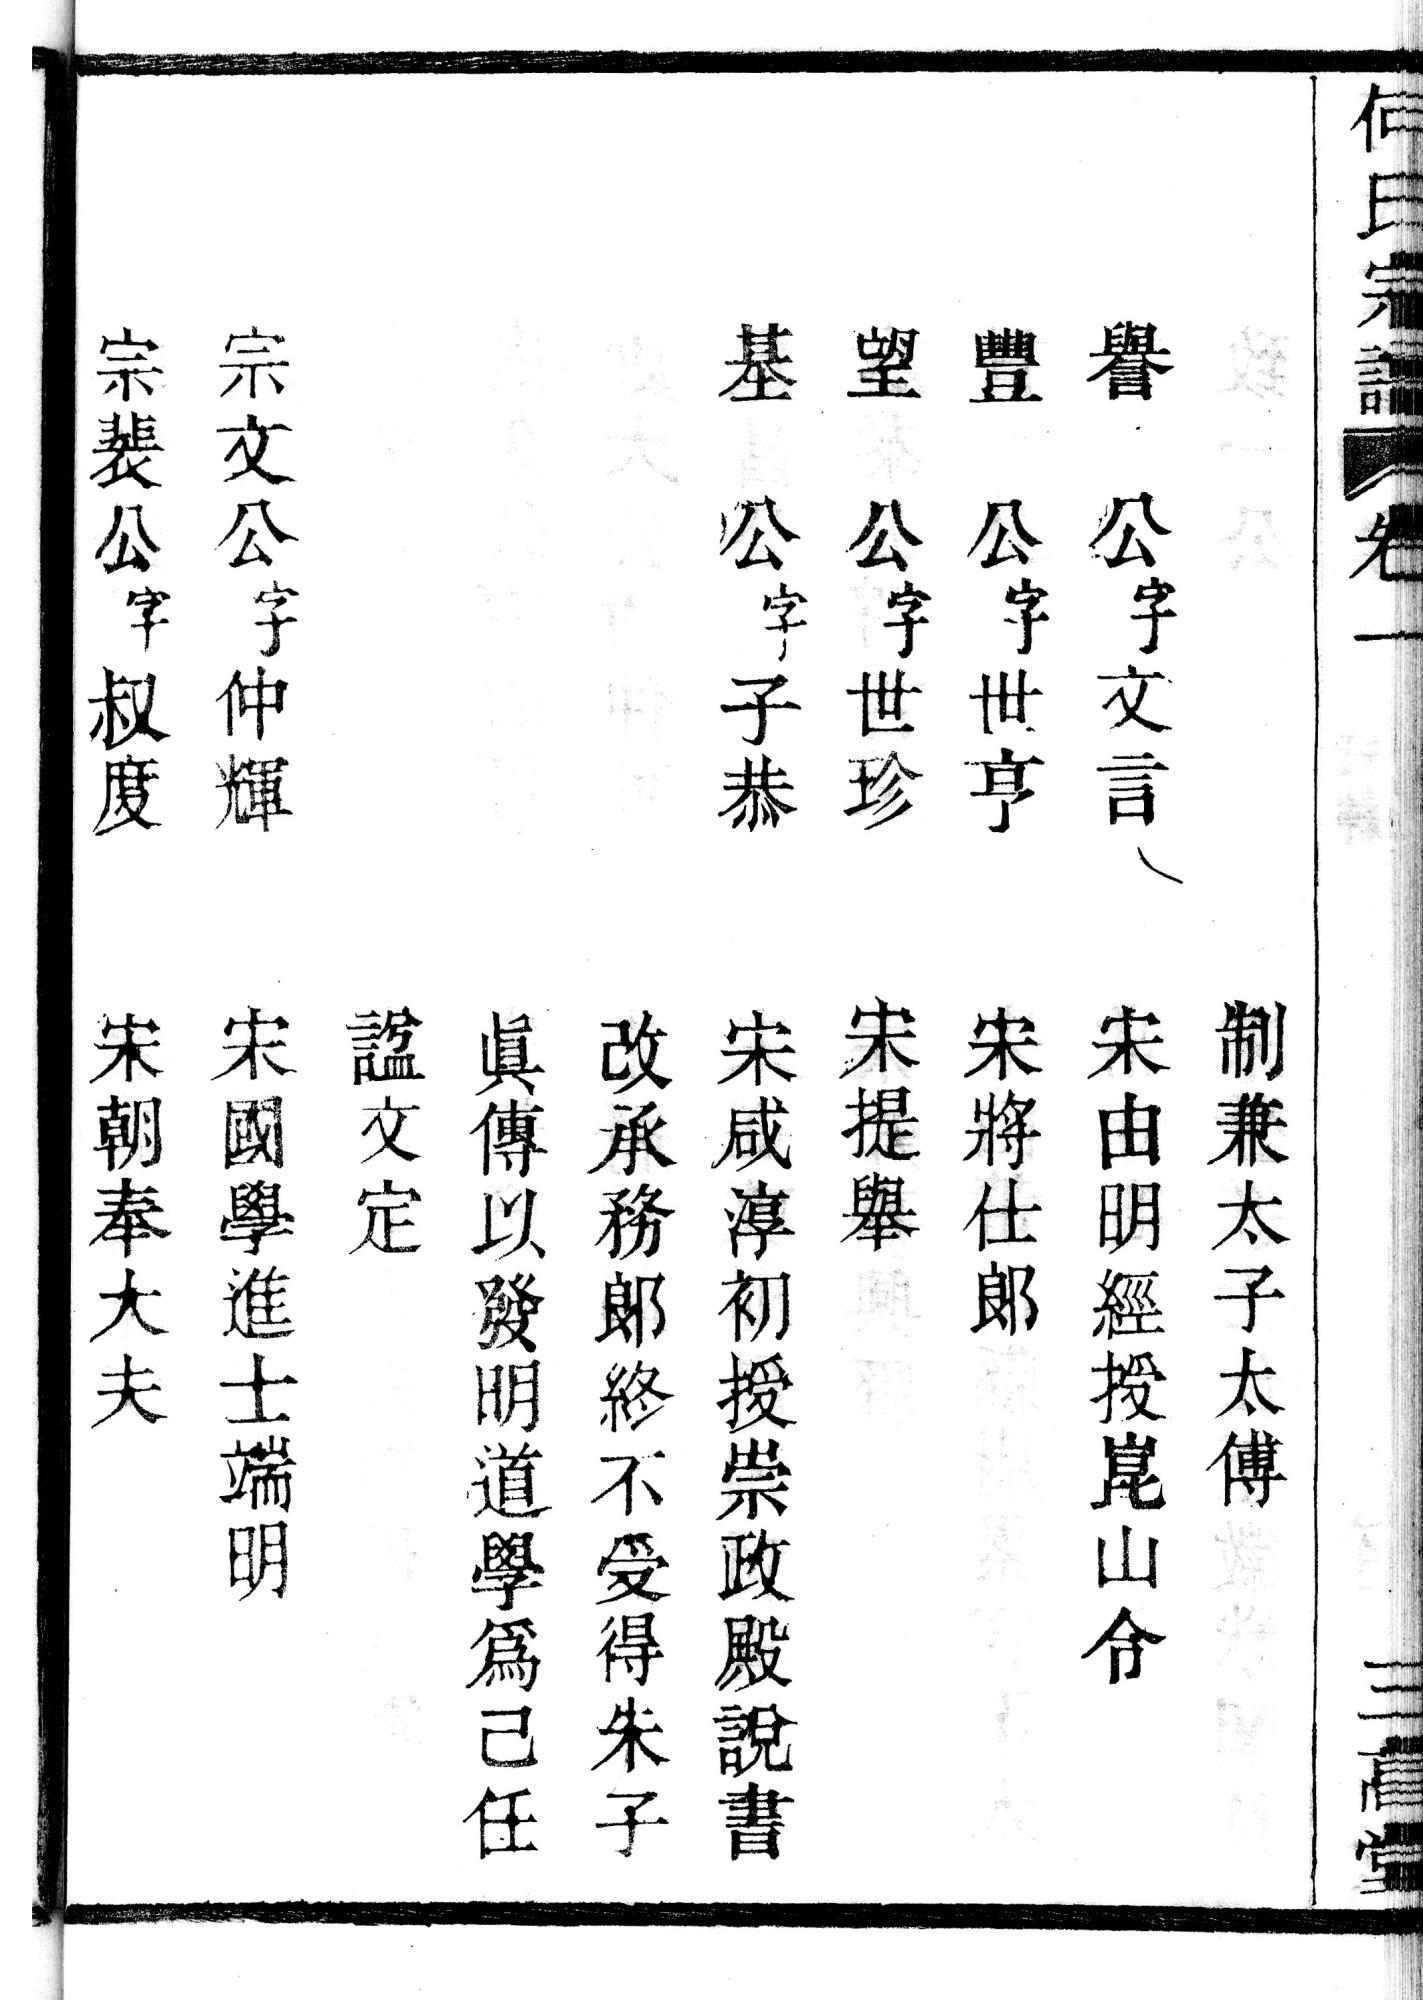 何氏宗譜 卷一 三高堂
制兼太子太傅
譽公字文言 宋由明經授崑山令
豐公字世亨 宋將仕郎
望公字世珍 宋提舉
基公字子恭 宋咸淳初授崇政殿說書
改承務郎終不受得朱子
眞傳以發明道學爲己任
諡文定
宗文公字仲輝 宋國學進士端明
宗裴公字叔度 宋朝奉大夫